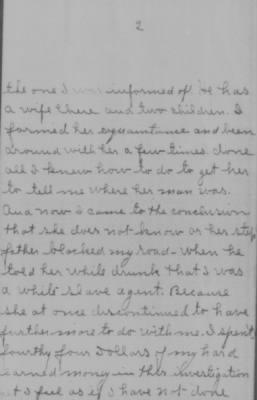 2
the one I was informed of. He has
a wife there and two children. I
formed her acquaintance and been
around with her a few times. done
all I knew how to do to get her
to tell me where her man was.
And now I came to the conclusion
that she does not know or her step
father blocked my road - when he
told her while drunk that I was
a while slave agent. Because
she at once discontinued to have
further more to do with me. I spent
fourthy four Dollars of my hard
earned money in this investigation
+ I feel as if I have not done